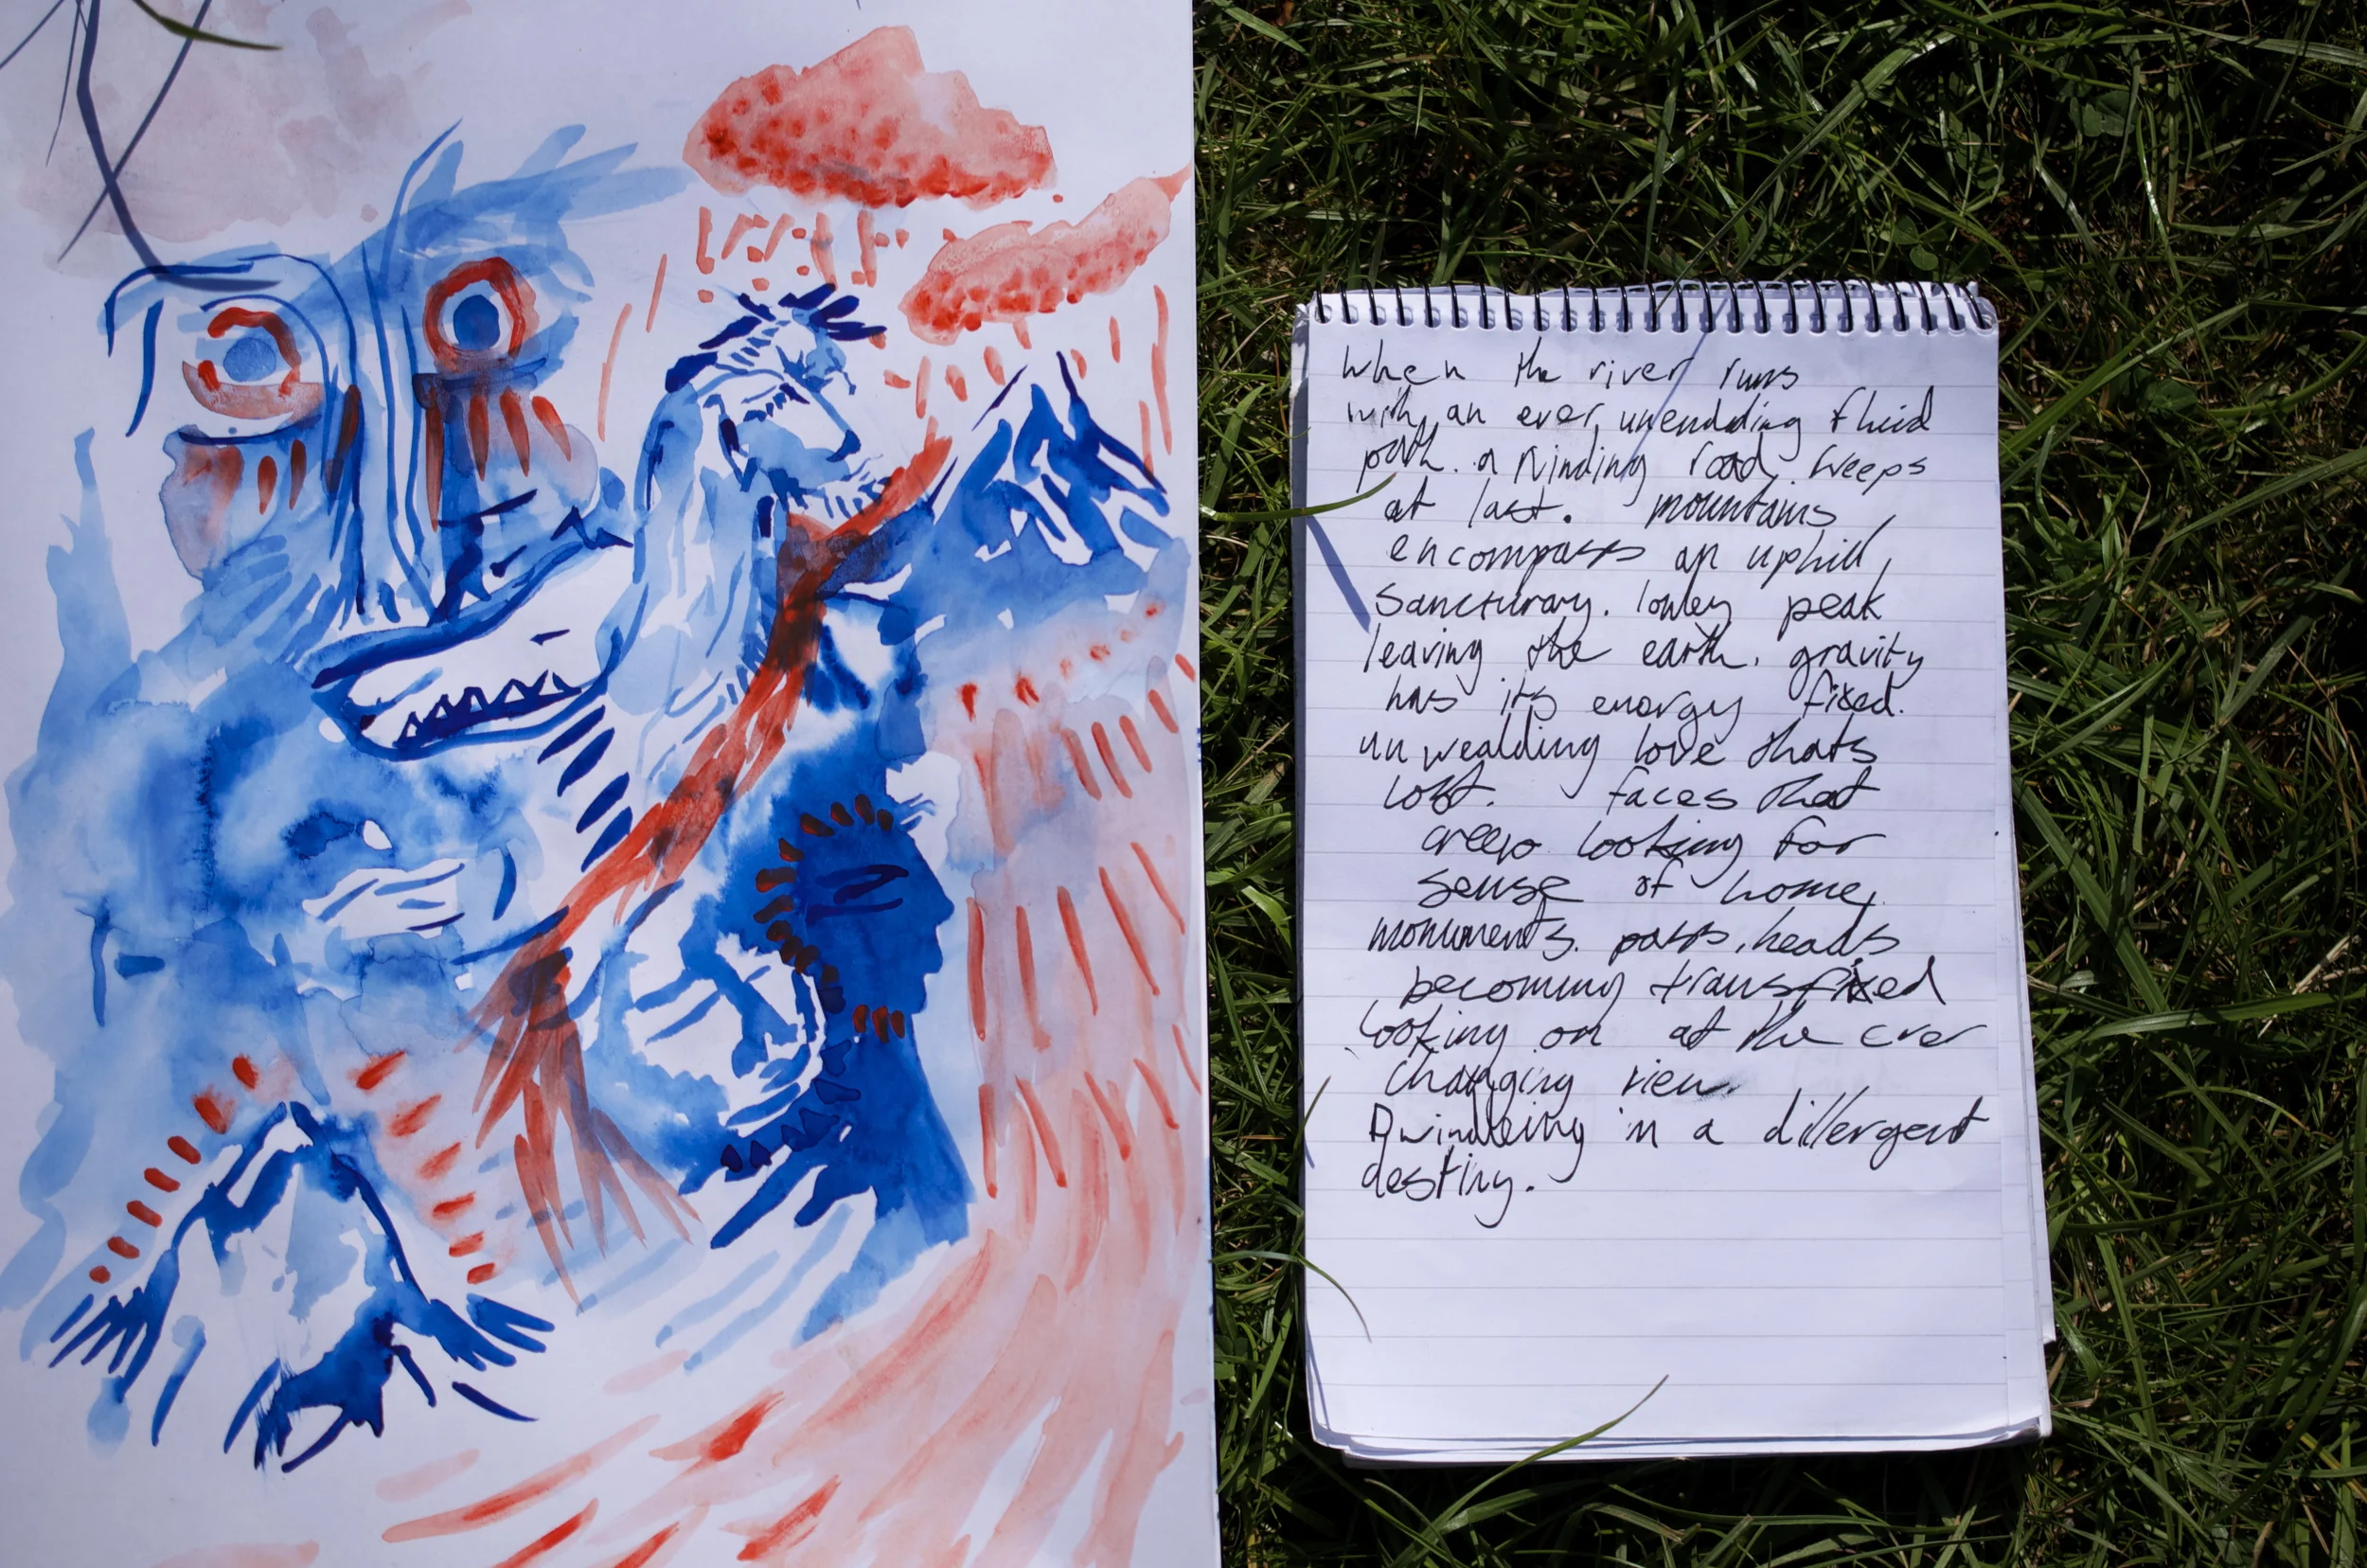 When the river runs
with an ever unendding fluid
path. a Kinding road weeps
at last. mountains
encompass an uphill,
Sancturary. lonley peak
leaving the earth. gravity
has its energy fixed.
unwealding love thats
lost. faces that
creep looking for
sense of home,
monuments. pasts, heads
becoming transfixed
looking on at the ever
changing view.
Dwindleing in a divergent
destiny.